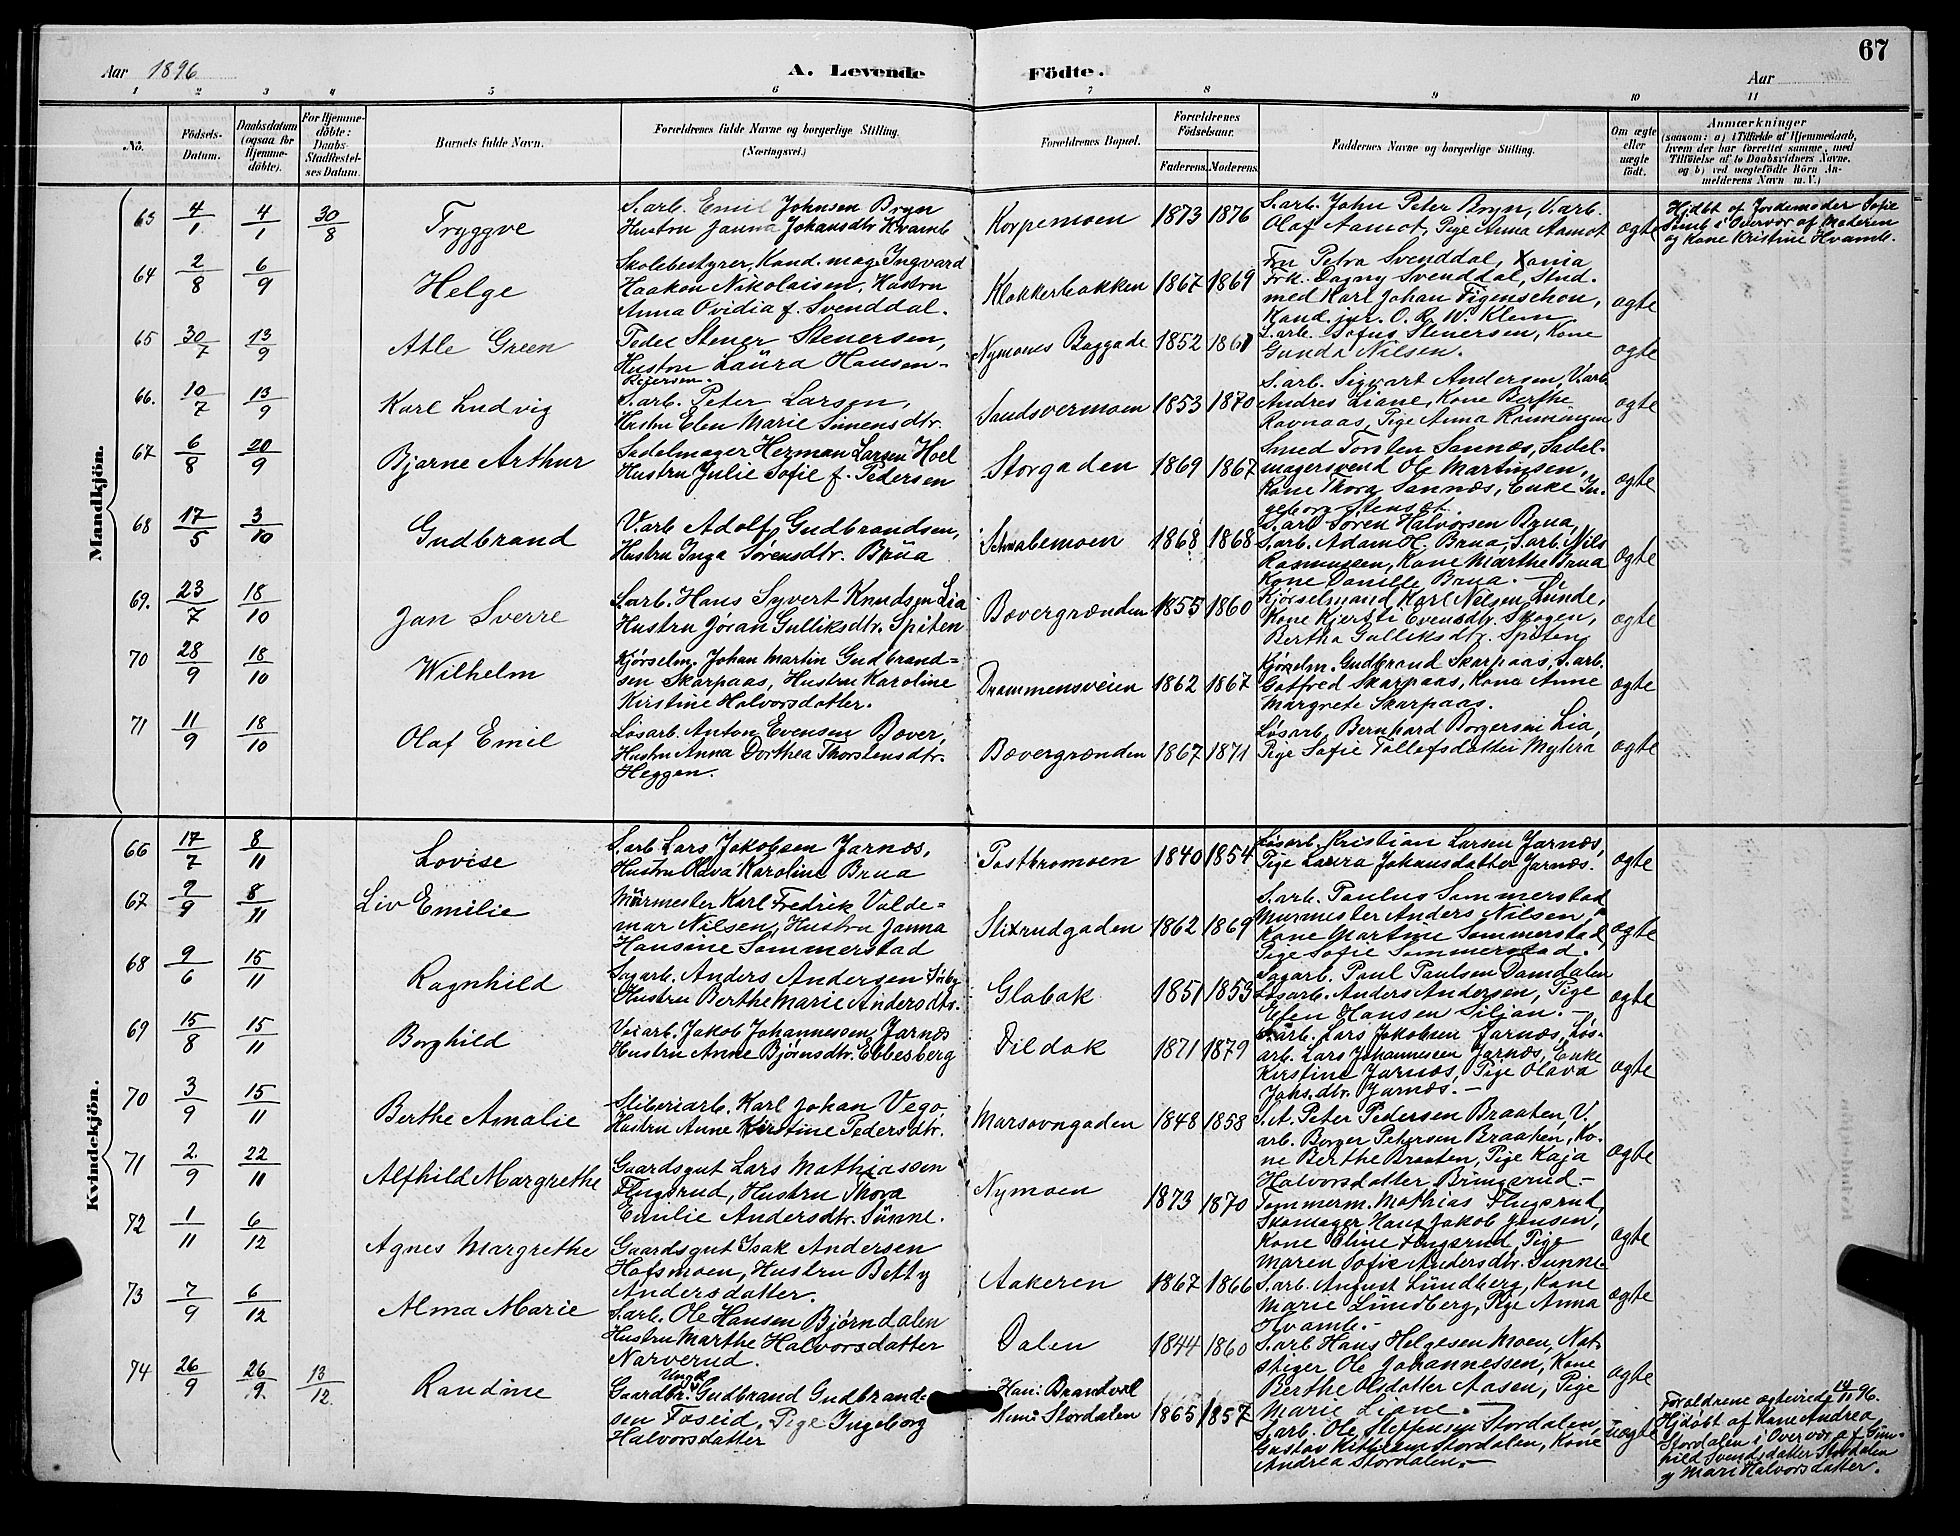 67
Aar 1896
A. Levende
Födte.
Aar
1 2 3 4 5 6 7 8 9 10 11
No.
Födsels-
Datum.
Daabsdatum
(ogsaa for
Hjemme-
døbte).
For Hjemme-
døbte:
Daabs-
Stadfæstel-
ses Datum.
Barnets fulde Navn.
Forældrenes fulde Navne og borgerlige Stilling.
(Næringsvei.)
Forældrenes Bopæl.
Forældrenes
Födselsaar.
Faderens. Moderens.
Faddernes Navne og borgerlige Stilling.
Om ægte
eller
uægte
födt.
Anmærkninger
(saasom: a) i Tilfælde af Hjemmedaab,
hvem der har forrettet samme, med
Tilföielse af to Daabsvidners Navne,
og b) ved uægtefödte Börn An-
melderens Navn m. V.)
Mandkjön.
63 4/1 4/1 30/8 Tryggve
S.arb. Emil Johnsen Bryn
Hustru Janna Johansdtr Kvamb
Korpemoen 1873 1876
S.arb. John Peter Bryn, V.arb.
Olaf Aamot, Pige Anna Aamot
ægte
Hjdbt af Jordemoder Sofie
Tomb i Overvær af Moderen
og Kone Kristine Hvamb.
64 2/8 6/9 Helge
Skolebestyrer, Kand. mag. Ingvard
Haakon Nikolaisen, Hustru
Anna Ovidia f. Svenddal.
Klokkerbakken 1867 1869
Fru Petra Svenddal, Xania
Frk. Dagny Svenddal, Stud.
med Karl Johan Figenschou,
Kand. jur. O. R. W. Klem
ægte
65 30/7 13/9 Atle Green
Peder Stener Stenersen,
Hustru Laura Hansen-
Reiersen.
Nymoens Baggade 1852 1861
S.arb. Sofus Stenersen, Kone
Gunda Nilsen.
ægte
66. 10/7 13/9 Karl Ludvig
S.arb. Peter Larsen,
Hustru Elen Marie Simensdtr.
Sandsvermoen 1853 1870
S.arb. Sigvart Andersen, V.arb.
Andres Liane, Kone Berthe
Ravnaas, Pige Anna Rønningen
ægte
67 6/8 20/9 Bjarne Arthur
Sadelmager Herman Larsen Hoel
Hustru Julie Sofie f. Pedersen
Storgaden 1869 1867
Smed Torsten Sannæs, Sadel-
magersvend Ole Martinsen,
Kone Thora Sannæs, Enke In-
geborg Stenset.
ægte
68 17/5 3/10 Gudbrand
V.arb Adolf Gudbrandsen,
Hustru Inga Sørensdtr. Brua
Schwabemoen 1868 1868
S.arb Søren Halvorsen Brua,
S.arb. Adam H. Brua, S.arb. Nils
Rasmussen, Kone Marthe Brua
Kone Danille Brua.
ægte
69. 23/7 18/10 Jan Sverre
S.arb. Hans Syvert Knudsen Lia
Hustru Jøran Gulliksdtr. Spiten
Bævergrænden 1855 1860
Kjørselmand Karl Nilsen Lunde,
Kone Kjersti Evensdtr. Skogen,
Bertha Gulliksdtr. Spiten
ægte
70 28/9 18/10 Wilhelm
Kjørselm. Johan Martin Gudbrand=
sen Skarpaas, Hustru Karoline
Kirstine Halvorsdatter.
Drammensveien 1862 1867
Kjørselm. Gudbrand Skarpaas, S.arb.
Gotfred Skarpaas, Kone Anne
Margrete Skarpaas.
ægte
71 11/9 18/10 Olaf Emil
Løsarb. Anton Evensen Bæver,
Hustru Anna Dorthea Thorstensdtr.
Heggen.
Bævergrænden 1867 1871
Løsarb. Bernhard Borgersen Lia,
Pige Sofie Tollefsdatter Myhra
ægte
Kvindekjön.
66 17/7 8/11 Lovise
S.arb Lars Jakobsen Jarnæs,
Hustru Olava Karoline Brua
Postbromoen 1840 1854
Løsarb. Kristian Larsen Jarnæs,
Pige Laura Johansdatter Jarnæs.
ægte
67 9/9 8/11 Liv Emilie
Murmester Karl Fredrik Valde=
mar Nilsen, Hustru Janna
Hansine Sommerstad
Stixrudgaden 1862 1869
S.arb. Paulus Sommerstad
Murmester Anders Nilsen,
Kone Martine Sommerstad,
Pige Sofie Sommerstad.
ægte
68 9/6 15/11 Ragnhild
Sagarb. Anders Andersen
Hustru Berthe Marie Andersdtr.
Glabak 1851 1853
Sagarb. Paul Paulsen Damdalen
Løsarb. Anders Andersen, Pige
Elen Hansen Siljan.-
ægte
69 15/8 15/11 Borghild
Veiarb. Jakob Johannessen Jarnæs
Hustru Anne Bjørnsdtr. Ebbesberg
Dildak 1871 1879
S.arb. Lars Jakobsen Jarnæs, Løs-
arb. Lars Johannesen Jarnæs, Enke
Kirstine Jarnæs, Pige Olava
Johs.dtr. Jarnæs.-
ægte
70 3/9 15/11 Berthe Amalie
Sliberiarb. Karl Johan Vego,
Hustru Anne Kirstine Pedersdtr.
Marsovngaden 1848 1858
S.A. Peter Pedersen Braaten, V.
arb. Borger Petersen Braaten, Ko-
ne Berthe Braaten, Pige Kaja
Halvorsdatter Bringsrud-
ægte
71 2/9 22/11 Alfhild Margrethe
Gaardsgut Lars Mathiassen
Flugsrud, Hustru Thora
Emilie Andersdtr. Sünne.
Nymoen 1873 1870
Tømmerm. Mathias Flugsrud,
Skomager Hans Jakob Jensen,
Kone Oline Flugsrud, Pige
Maren Sofie Andersdtr. Sunne
ægte
72 1/11 6/12 Agnes Margrethe
Gaardsgut Isak Andersen
Hofsmoen, Hustru Betty
Andersdatter.
Aakeren 1867 1866
S.arb. August Lundberg, Kone
Marie Lundberg, Pige Anna
Hvamb.-
ægte
73 7/9 6/12 Alma Marie
S.arb. Ole Hansen Bjørndalen
Hustru Marthe Halvorsdatter
Narverud.
Dalen 1844 1860
S.arb Hans Helgesen Moen, Not-
stiger Ole Johannessen, Kone
Berthe Olsdatter Aasen, Pige
Marie Liane.-
ægte
74 26/9 26/9. 13/12. Randine
Ungk.
Gaardbr. Gudbrand Gudbrand=
sen Fosud, Pige Ingeborg
Halvorsdatter
Han: Brandvol
Hun: Stordalen 1865 1857
S.arb. Ole Steffensen Stordalen,
Gustav Kittilsen Stordalen, Kone
Andrea Stordalen.-
uægte
Forældrene ægteviede 14/11 96.
Hjdøbt af Kone Andrea
Stordalen i Overvær af Gun-
hild Svendsdatter Stordalen
og Mari Halvorsdatter.